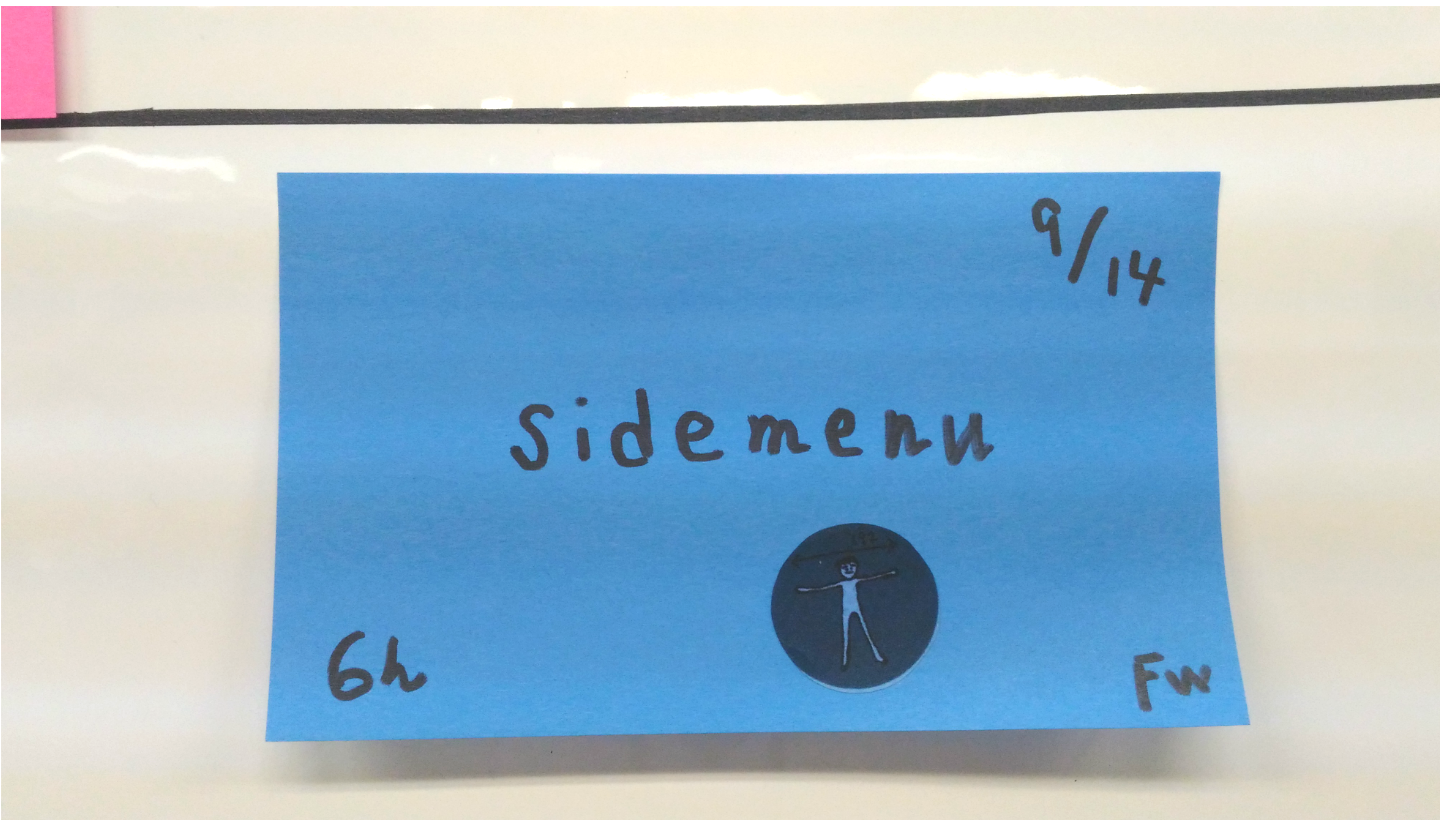 9/14
sidemenu
6h
FW